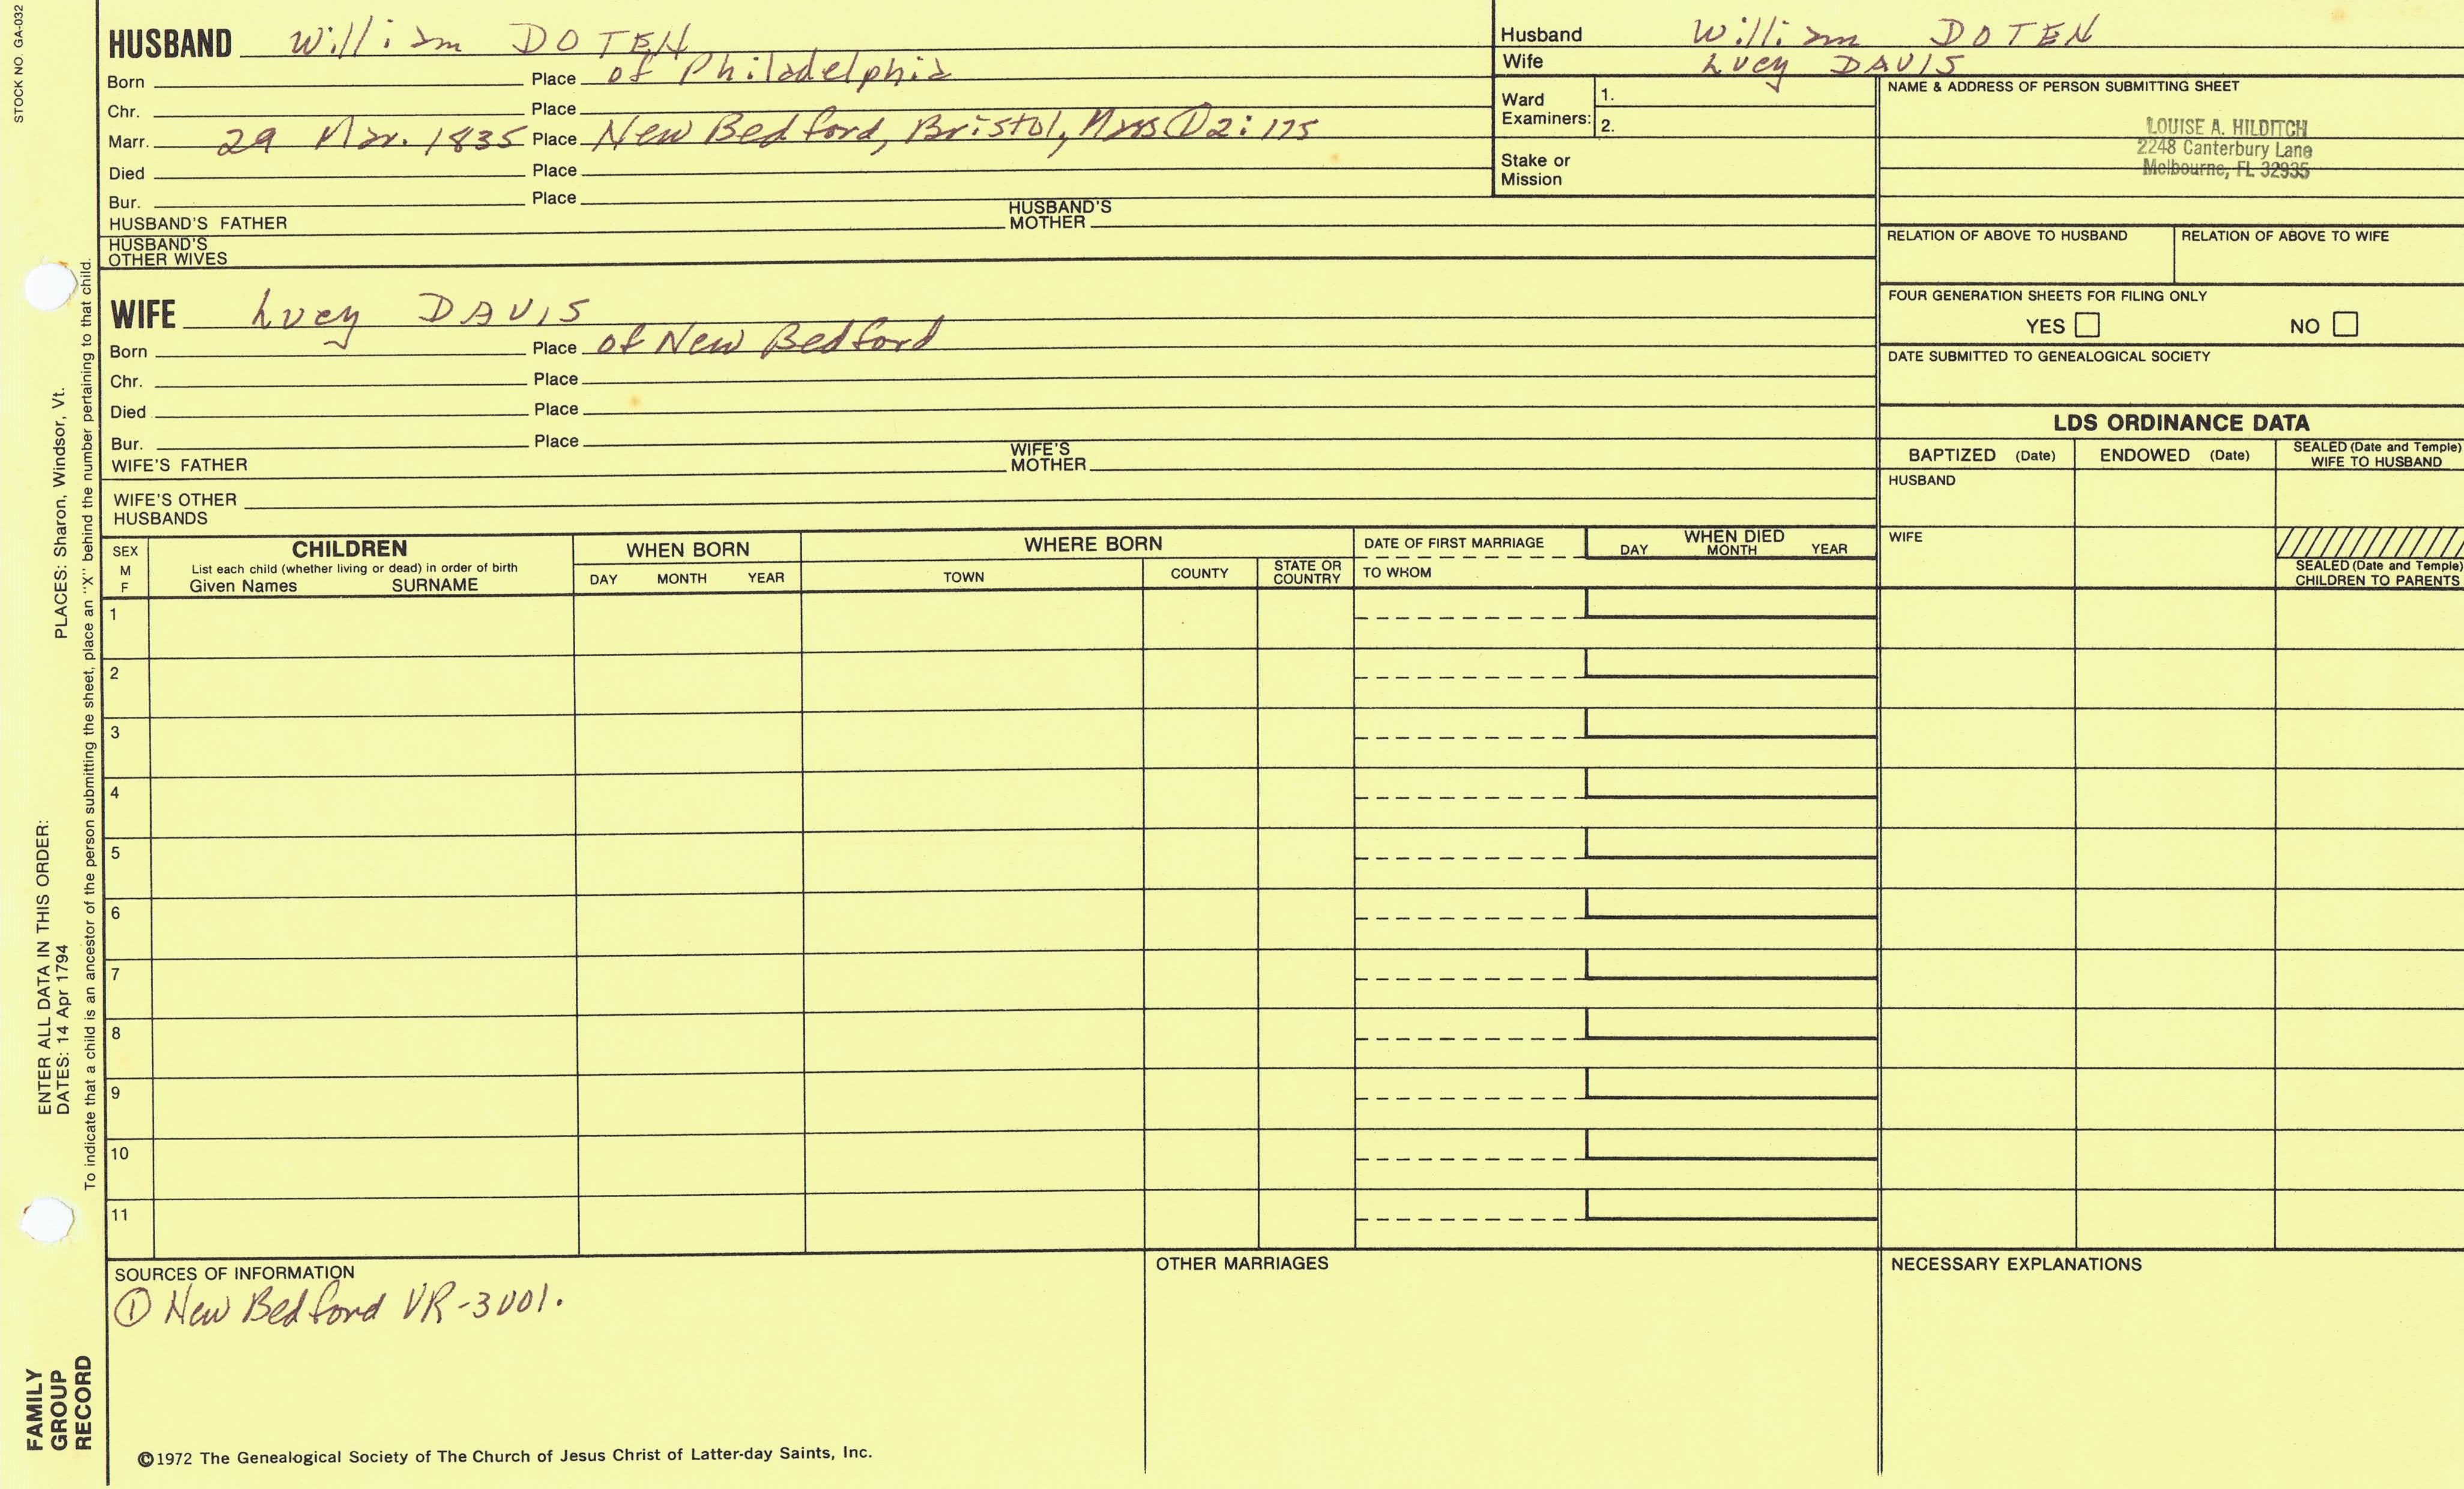 STOCK NO. GA-032
HUSBAND William DOTEN
Born Place of Philadelphia
Chr. Place
Marr. 29 Mar. 1835 Place New Bedford, Bristol, Mass ① 2: 175
Died Place
Bur. Place
HUSBAND'S FATHER HUSBAND'S MOTHER
HUSBAND'S OTHER WIVES
Husband William DOTEN
Wife Lucy DAVIS
Ward Examiners: 1.
2.
Stake or Mission
NAME & ADDRESS OF PERSON SUBMITTING SHEET
LOUISE A. HILDITCH
2248 Canterbury Lane
Melbourne, FL 32935
RELATION OF ABOVE TO HUSBAND RELATION OF ABOVE TO WIFE
FOUR GENERATION SHEETS FOR FILING ONLY
YES NO
DATE SUBMITTED TO GENEALOGICAL SOCIETY
WIFE Lucy DAVIS
Born Place of New Bedford
Chr. Place
Died Place
Bur. Place
WIFE'S FATHER WIFE'S MOTHER
WIFE'S OTHER HUSBANDS
LDS ORDINANCE DATA
BAPTIZED (Date) ENDOWED (Date) SEALED (Date and Temple) WIFE TO HUSBAND
HUSBAND
WIFE
SEALED (Date and Temple) CHILDREN TO PARENTS
SEX M F
CHILDREN
List each child (whether living or dead) in order of birth
Given Names SURNAME
WHEN BORN
DAY MONTH YEAR
WHERE BORN
TOWN COUNTY STATE OR COUNTRY
DATE OF FIRST MARRIAGE
TO WHOM
WHEN DIED
DAY MONTH YEAR
1
2
3
4
5
6
7
8
9
10
11
SOURCES OF INFORMATION
① New Bedford VR-3 vol.
OTHER MARRIAGES
NECESSARY EXPLANATIONS
©1972 The Genealogical Society of The Church of Jesus Christ of Latter-day Saints, Inc.
FAMILY GROUP RECORD
ENTER ALL DATA IN THIS ORDER:
DATES: 14 Apr 1794 PLACES: Sharon, Windsor, Vt.
To indicate that a child is an ancestor of the person submitting the sheet, place an "X" behind the number pertaining to that child.